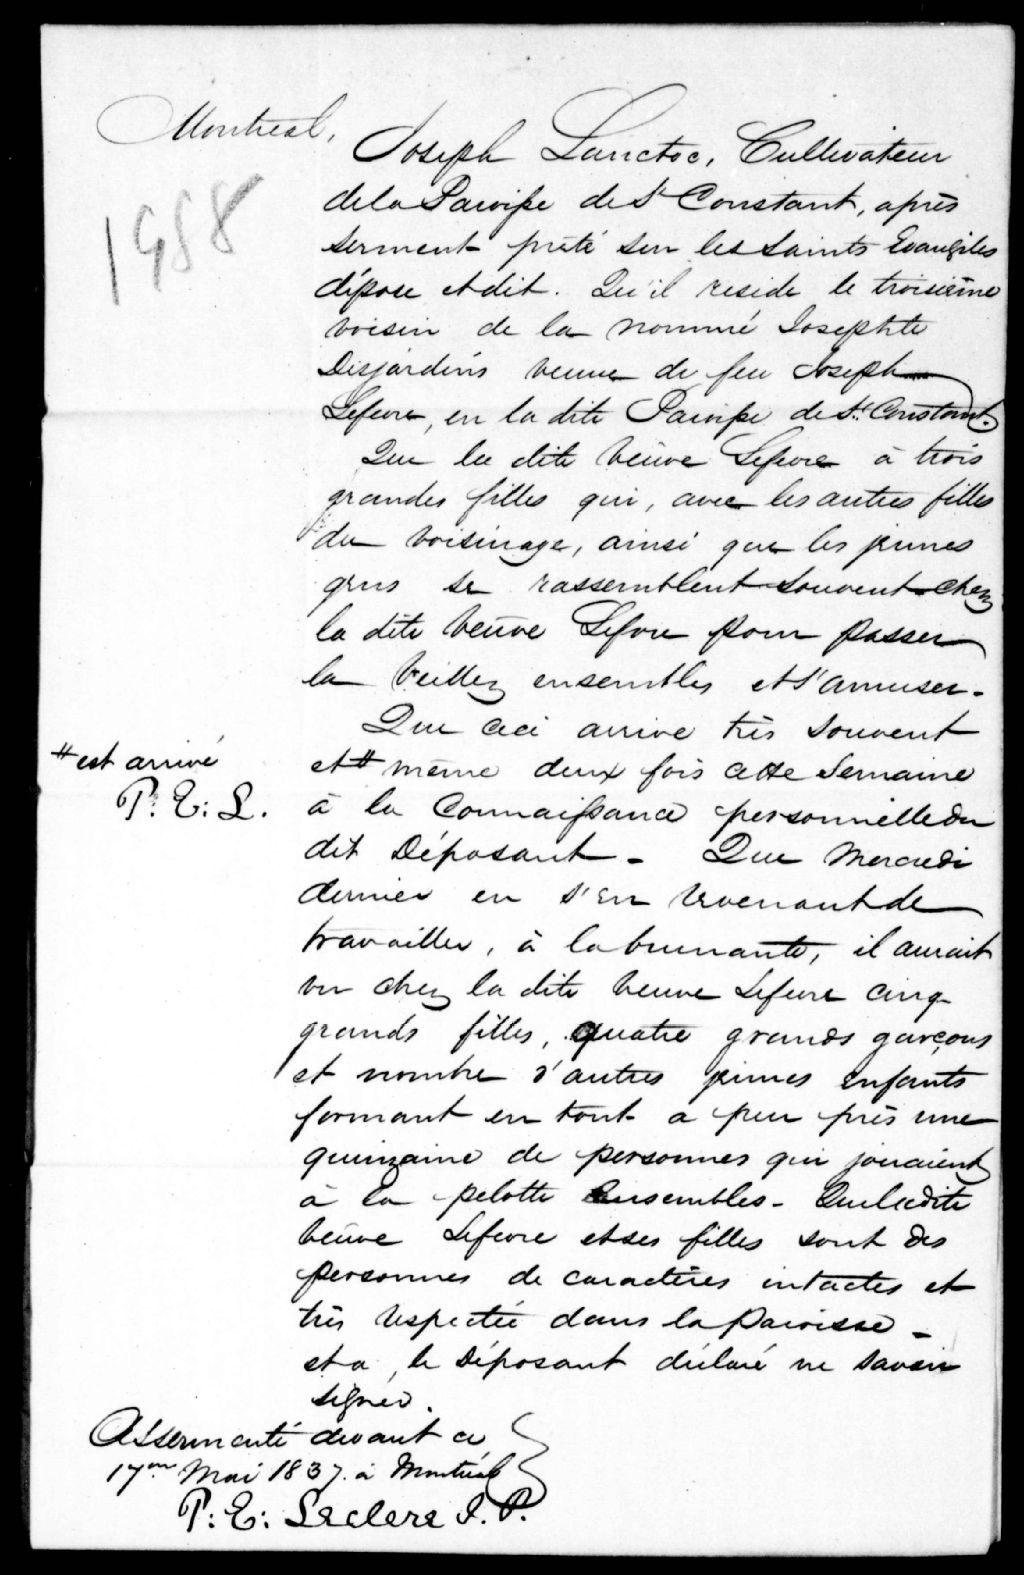 Montreal,
1988
Joseph Lanctoc, Cultivateur
de la Paroisse de St Constant, après
serment prêté sur les Saints Evangiles
dépose et dit. Qu'il reside le troisième
voisin de la nommé Josephte
Desjardins veuve de feu Joseph
Lefevre, en la dite Paroisse de St. Constant.
Que la dite Veuve Lefevre à trois
grandes filles qui, avec les autres filles
du voisinage, ainsi que les jeunes
gens se rassemblent souvent chez
la dite Veuve Lefvre pour passer
la Veillez ensembles et s'amuser.
Que ceci arrive très souvent
et # même deux fois cette Semaine
# est arrivé
P. E: L.
à la Connaissance personnelle du
dit Déposant - Que Mercredi
dernier en s'en revenant de
travailler, à la brunante, il aurait
vu chez la dite Veuve Lefevre cinq
grands filles, quatre grands garçons
et nombre d'autres jeunes enfants
formant en tout a peu près une
quinzaine de personnes qui jouaient
à la pelotte Ensembles - Que la dite
Veuve Lefevre et ses filles sont des
personnes de caractères intactes et
très respectée dans la Paroisse -
et a, le Déposant déclaré ne savoir
signer.
Assermenté devant ce
17me Mai 1837. à Montréal
P: E: Leclere J. P.